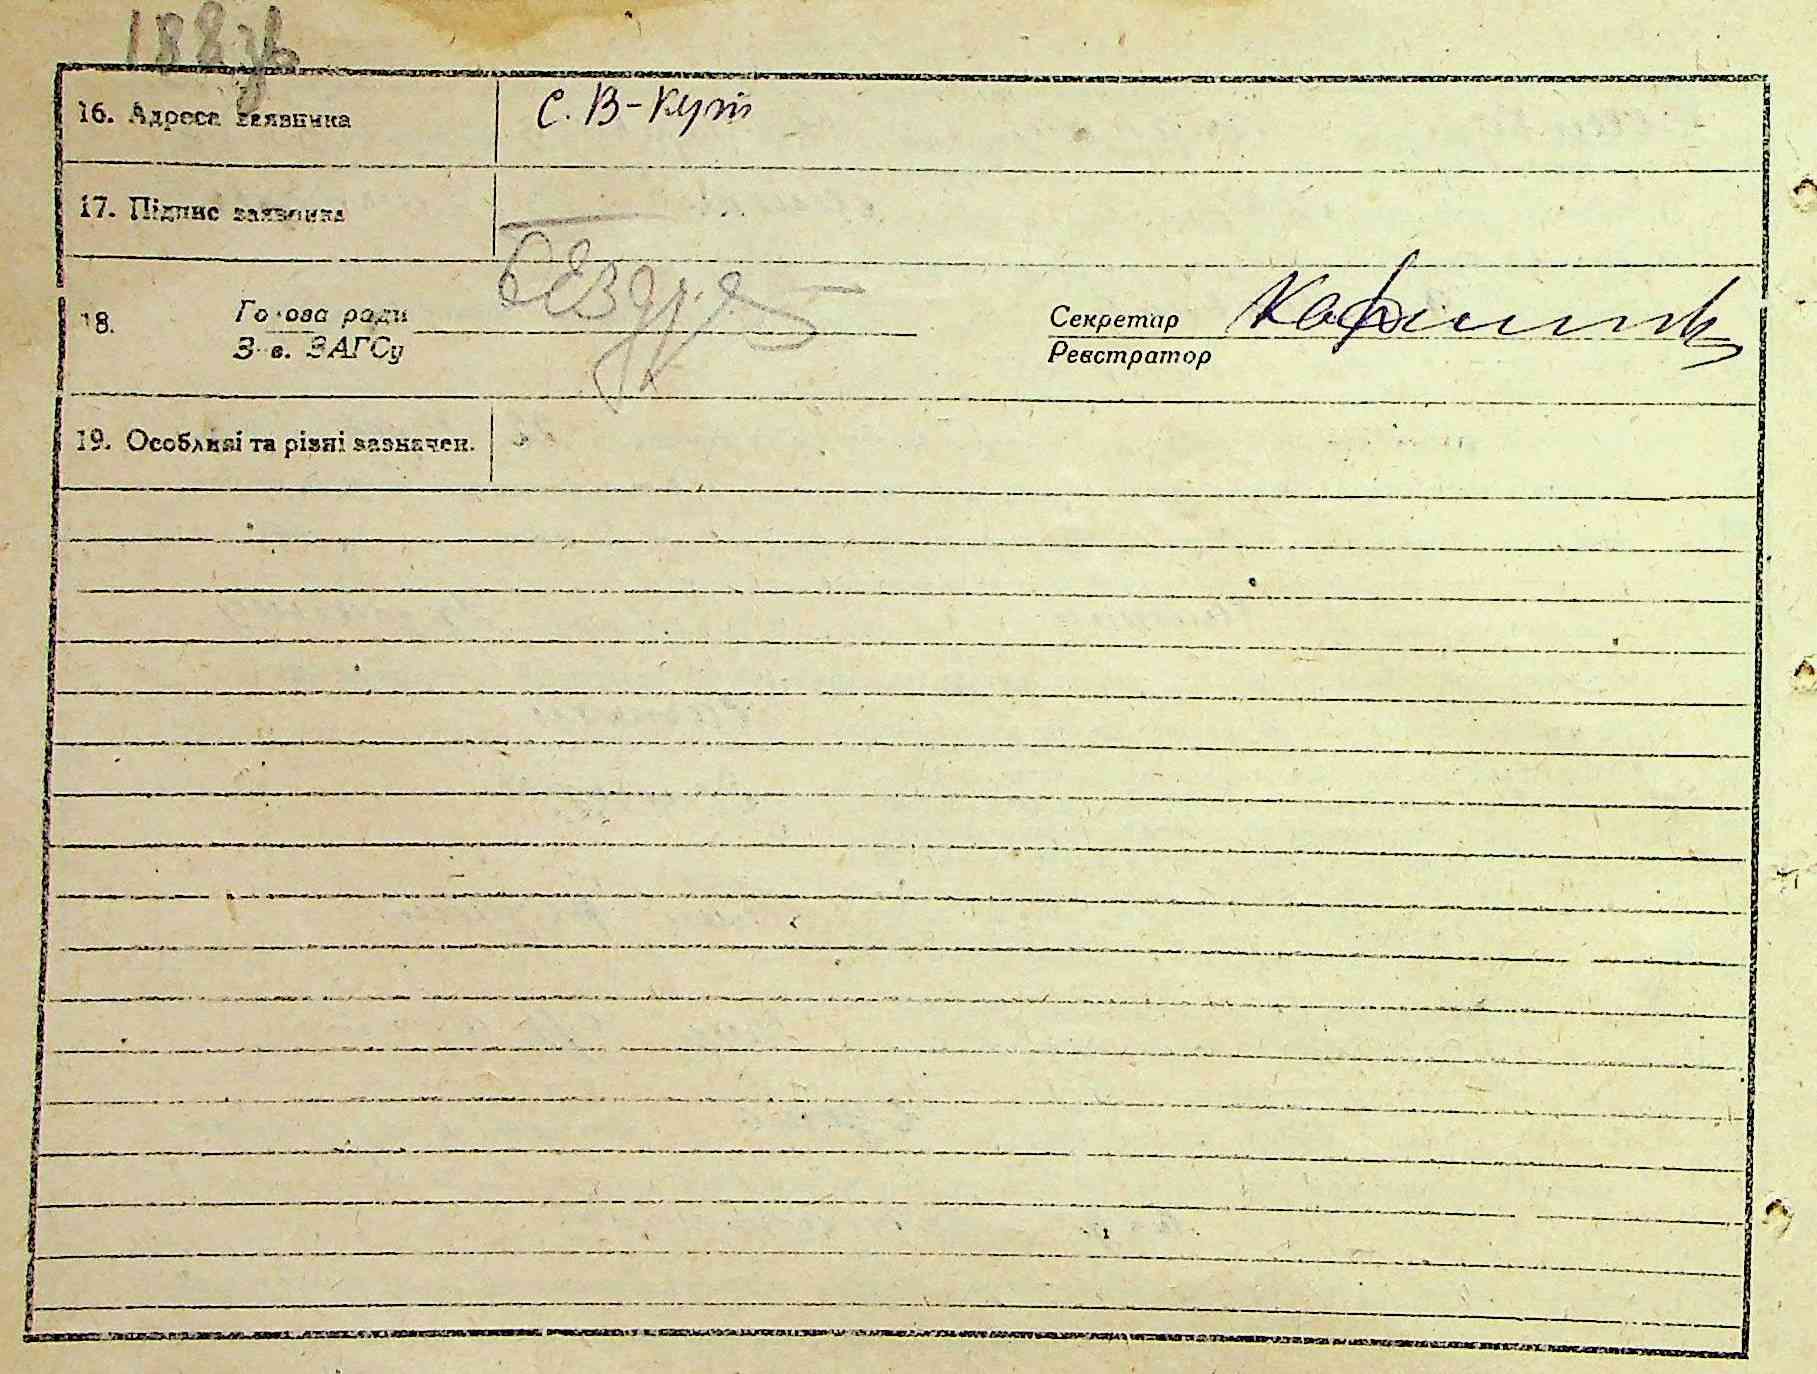 188 зв
16. Адреса заявника
с. В-Кут
17. Підпис заявника
18. Голова ради
Зав. ЗАГСу
Секретар
Реєстратор
19. Особливі та різні зазначен.